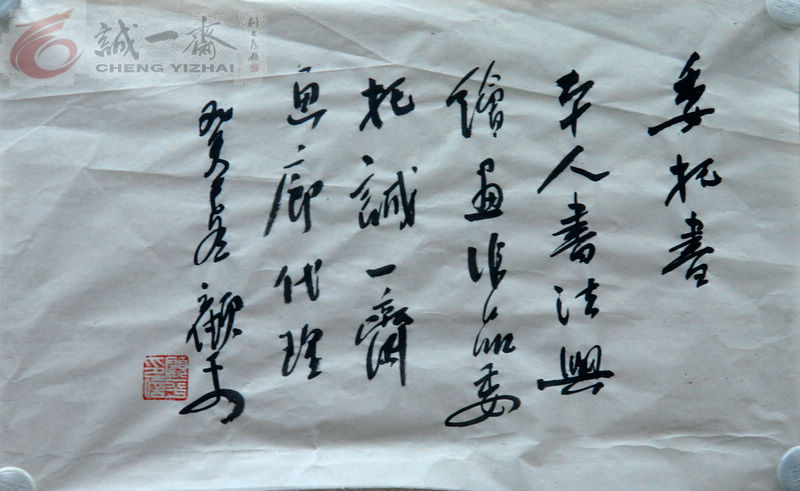 委托書
本人書法與
繪畫作品委
托誠一齋
画廊代理
癸
誠一齋
CHENG YIZHAI